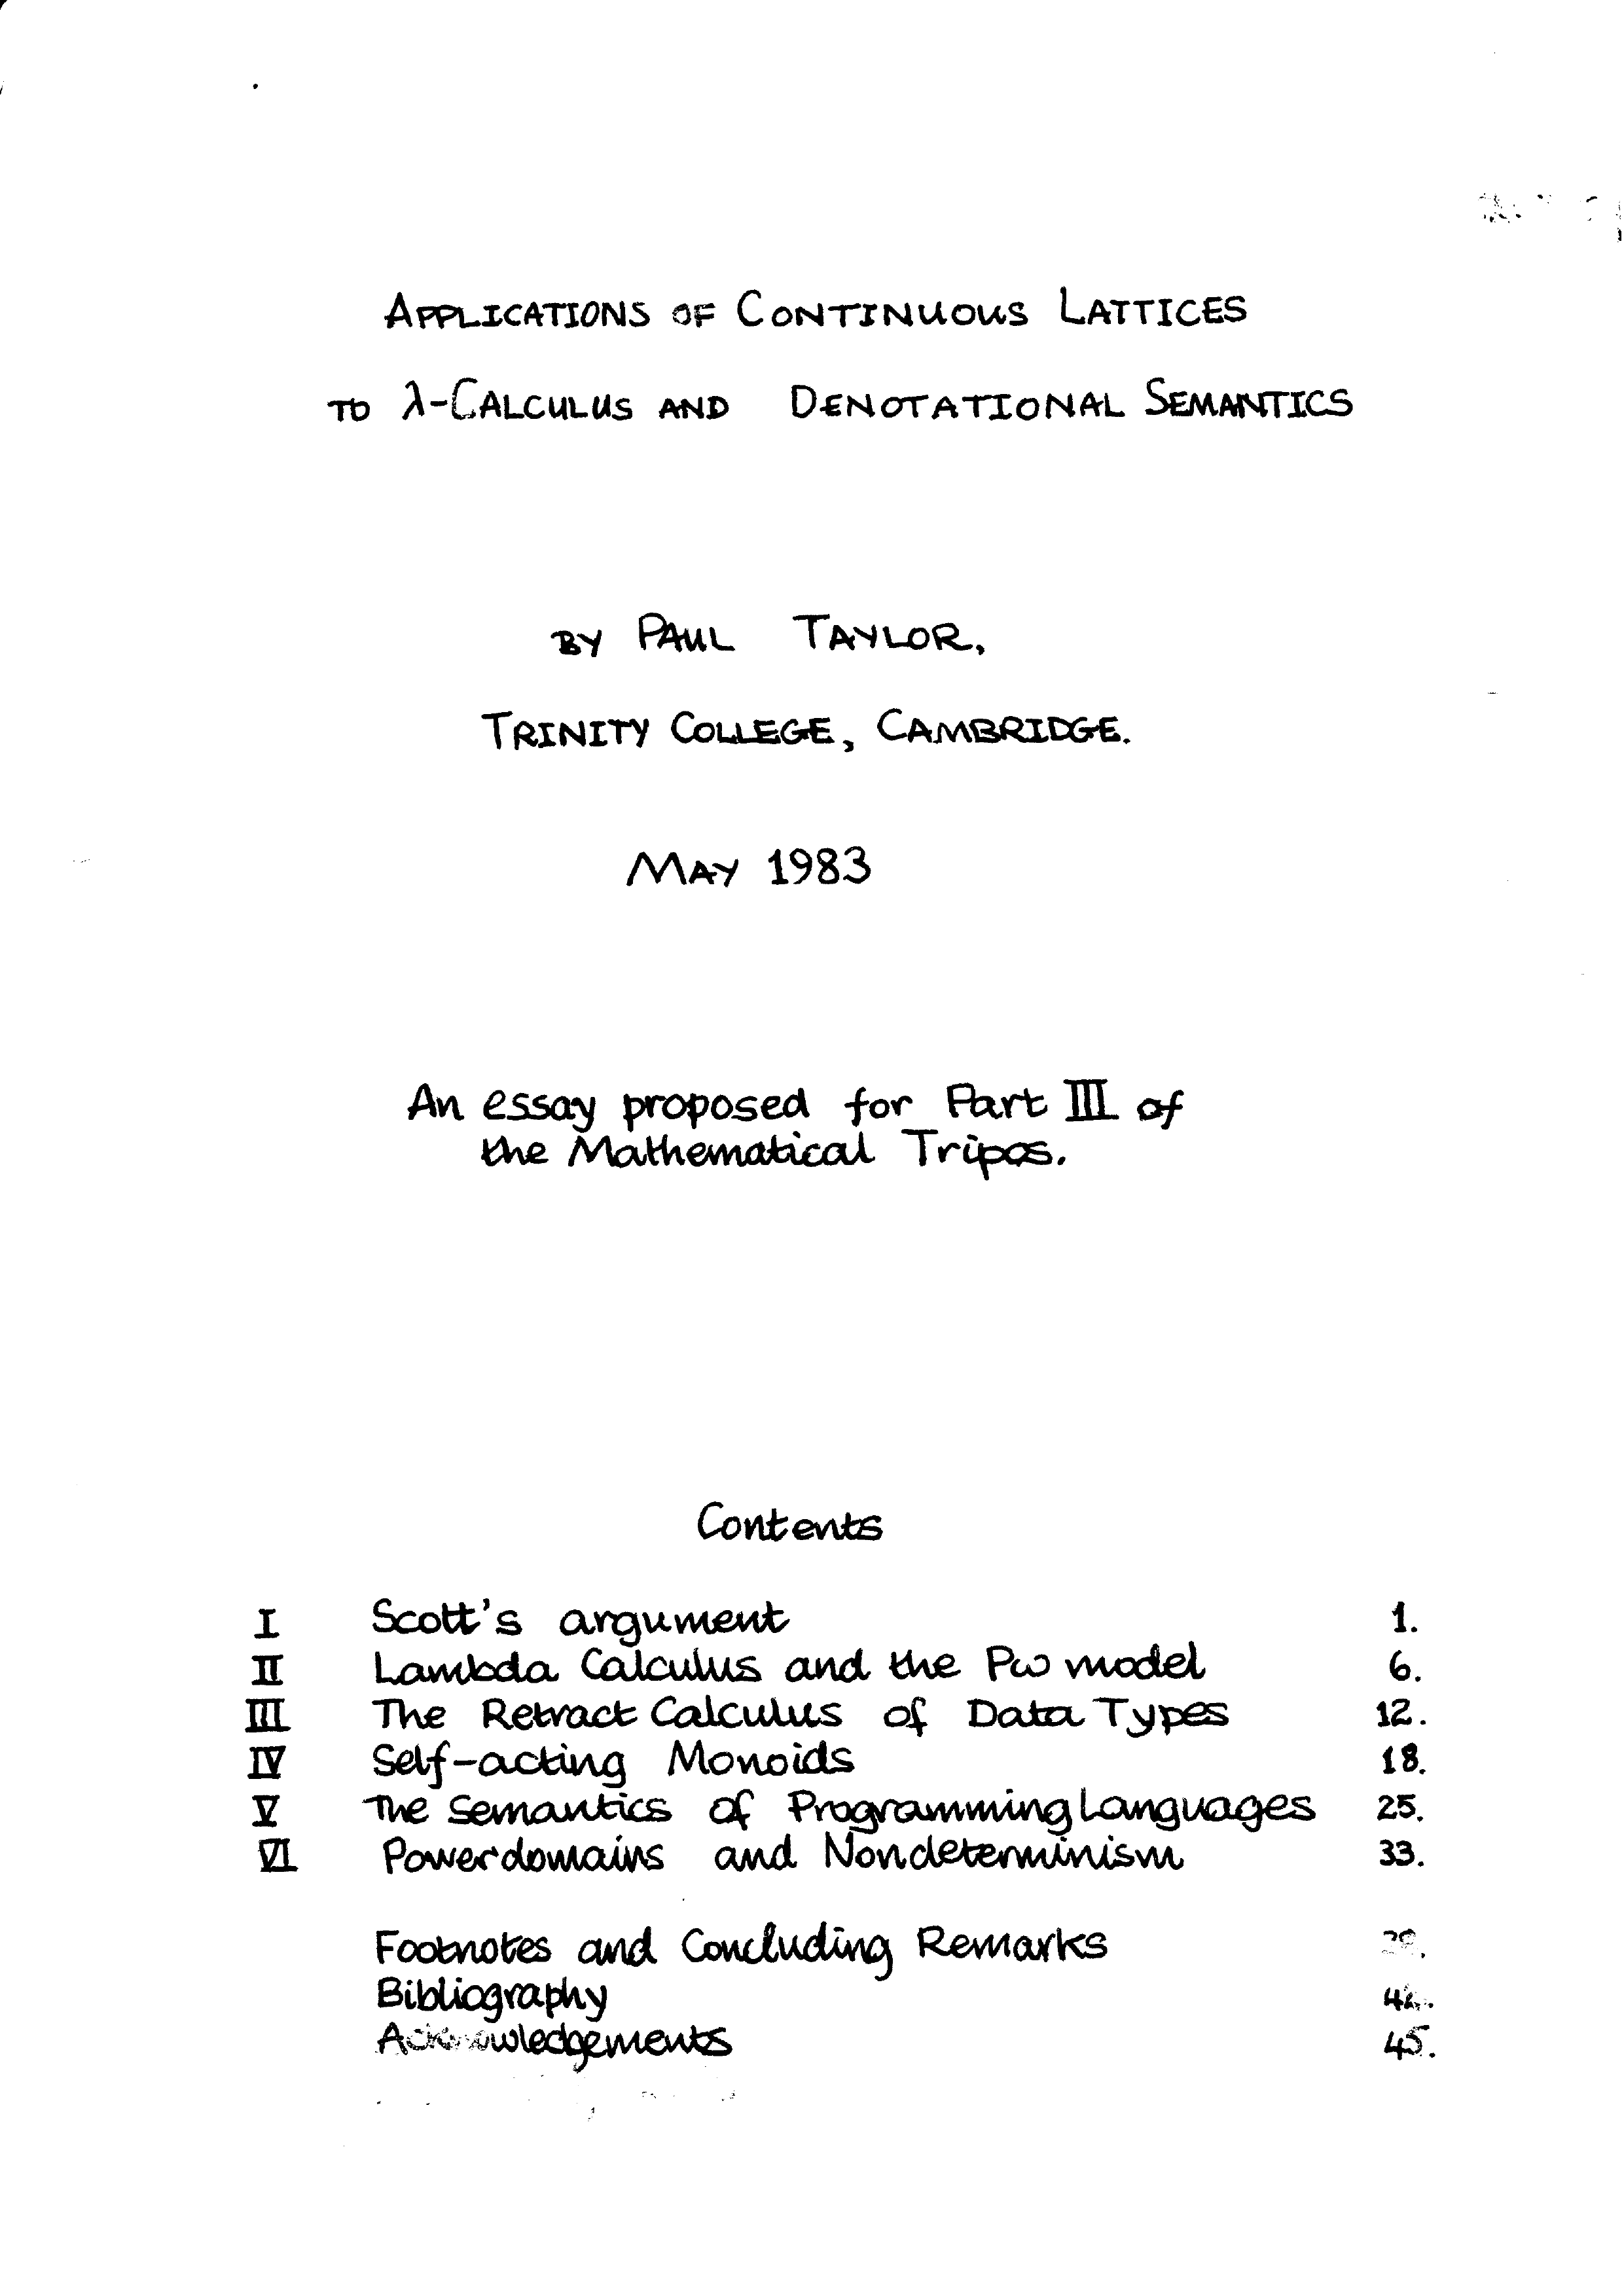 APPLICATIONS OF CONTINUOUS LATTICES
TO λ-CALCULUS AND DENOTATIONAL SEMANTICS
BY PAUL TAYLOR,
TRINITY COLLEGE, CAMBRIDGE.
MAY 1983
An essay proposed for Part III of
the Mathematical Tripos.
Contents
I Scott's argument 1.
II Lambda Calculus and the Pω model 6.
III The Retract Calculus of Data Types 12.
IV Self-acting Monoids 18.
V The Semantics of Programming Languages 25.
VI Powerdomains and Nondeterminism 33.
Footnotes and Concluding Remarks
Bibliography
Acknowledgements 45.